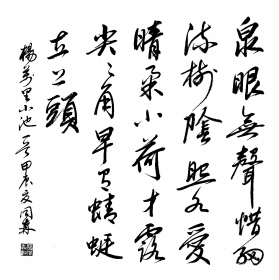 泉眼無聲惜細
流樹陰照水愛
晴柔小荷才露
尖尖角早有蜻蜓
立上頭
楊萬里小池一首甲辰夏